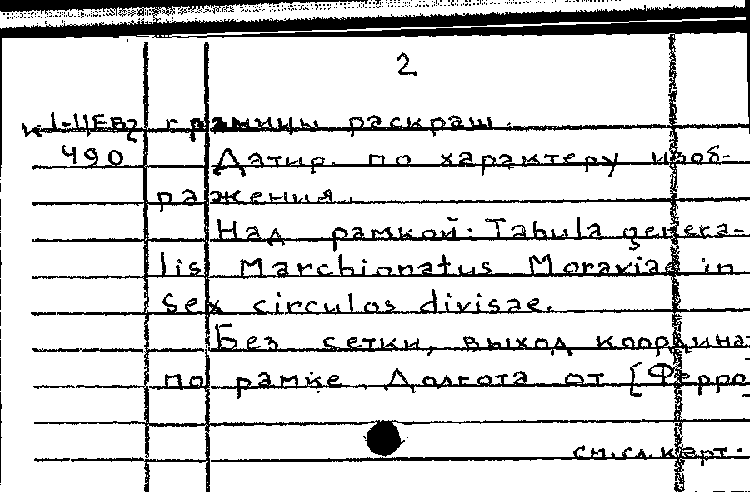 2
К1-ЦЕВ2 границы раскраш.
490 Датир. по характеру изоб-
ражения.
Над рамкой: Tabula genera-
lis Marchionatus Moraviae in
sex circulos divisae.
Без сетки, выход координат
по рамке. Долгота от [Ферро
см. сл. карт.